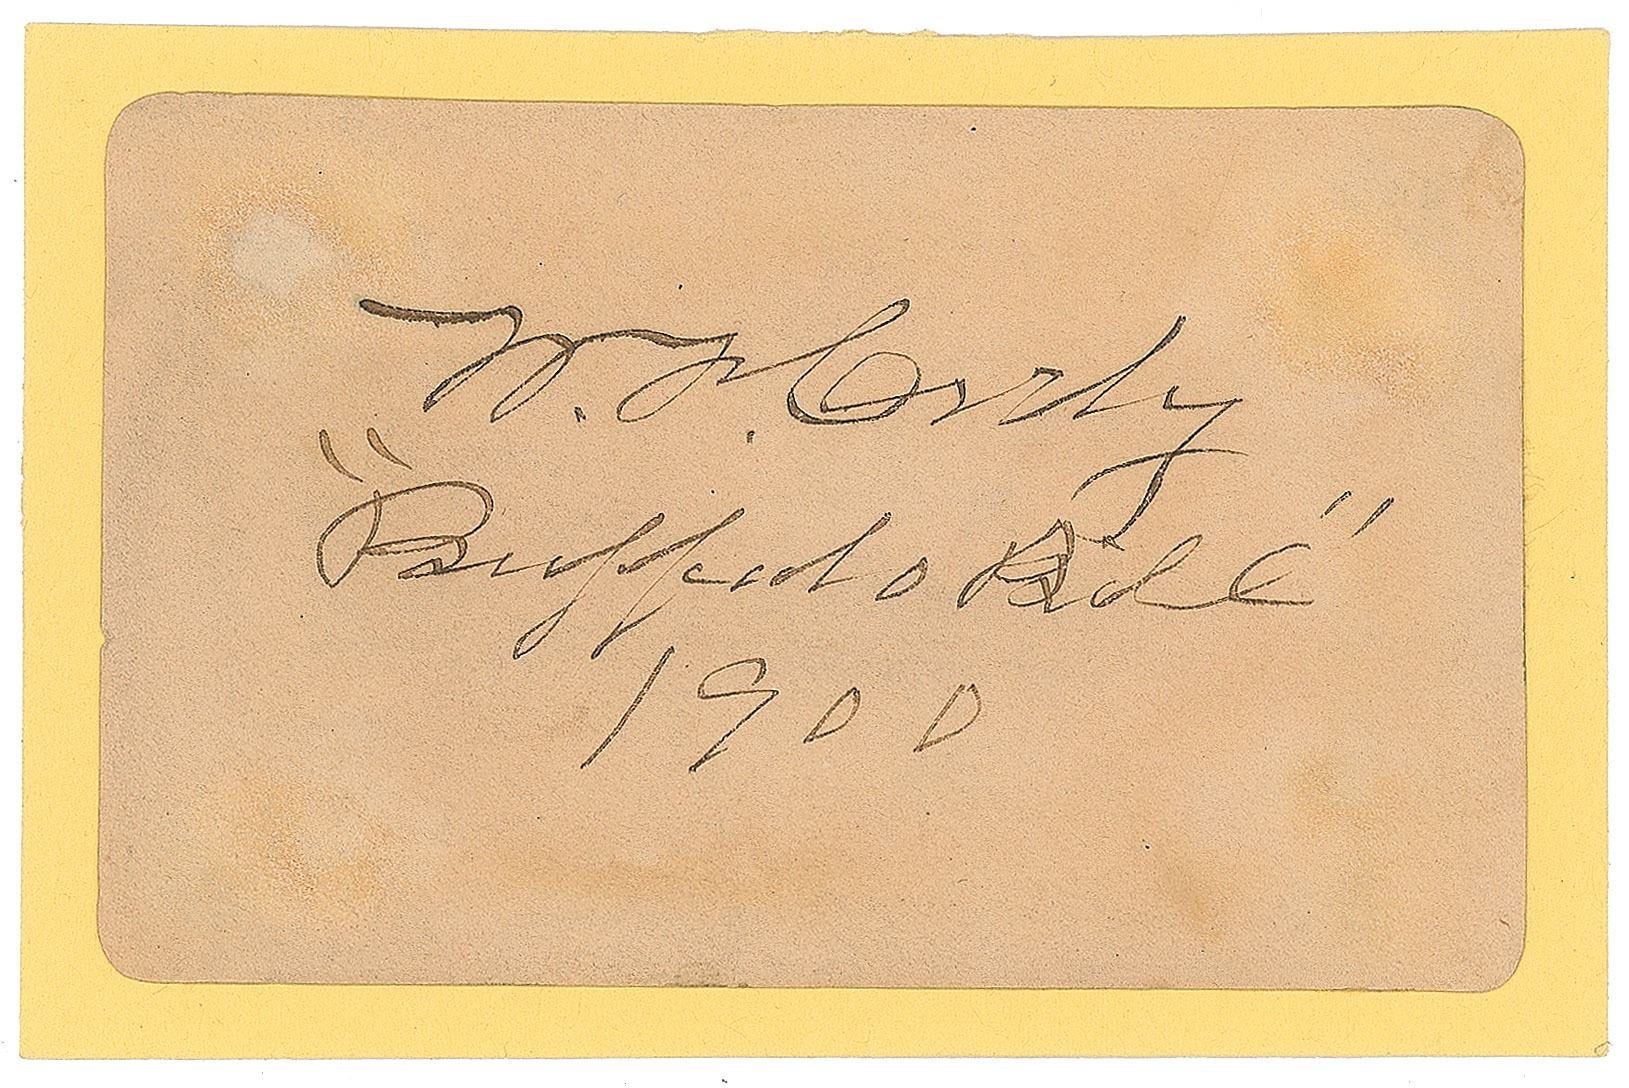 W. F. Cody
"Buffalo Bill"
1900